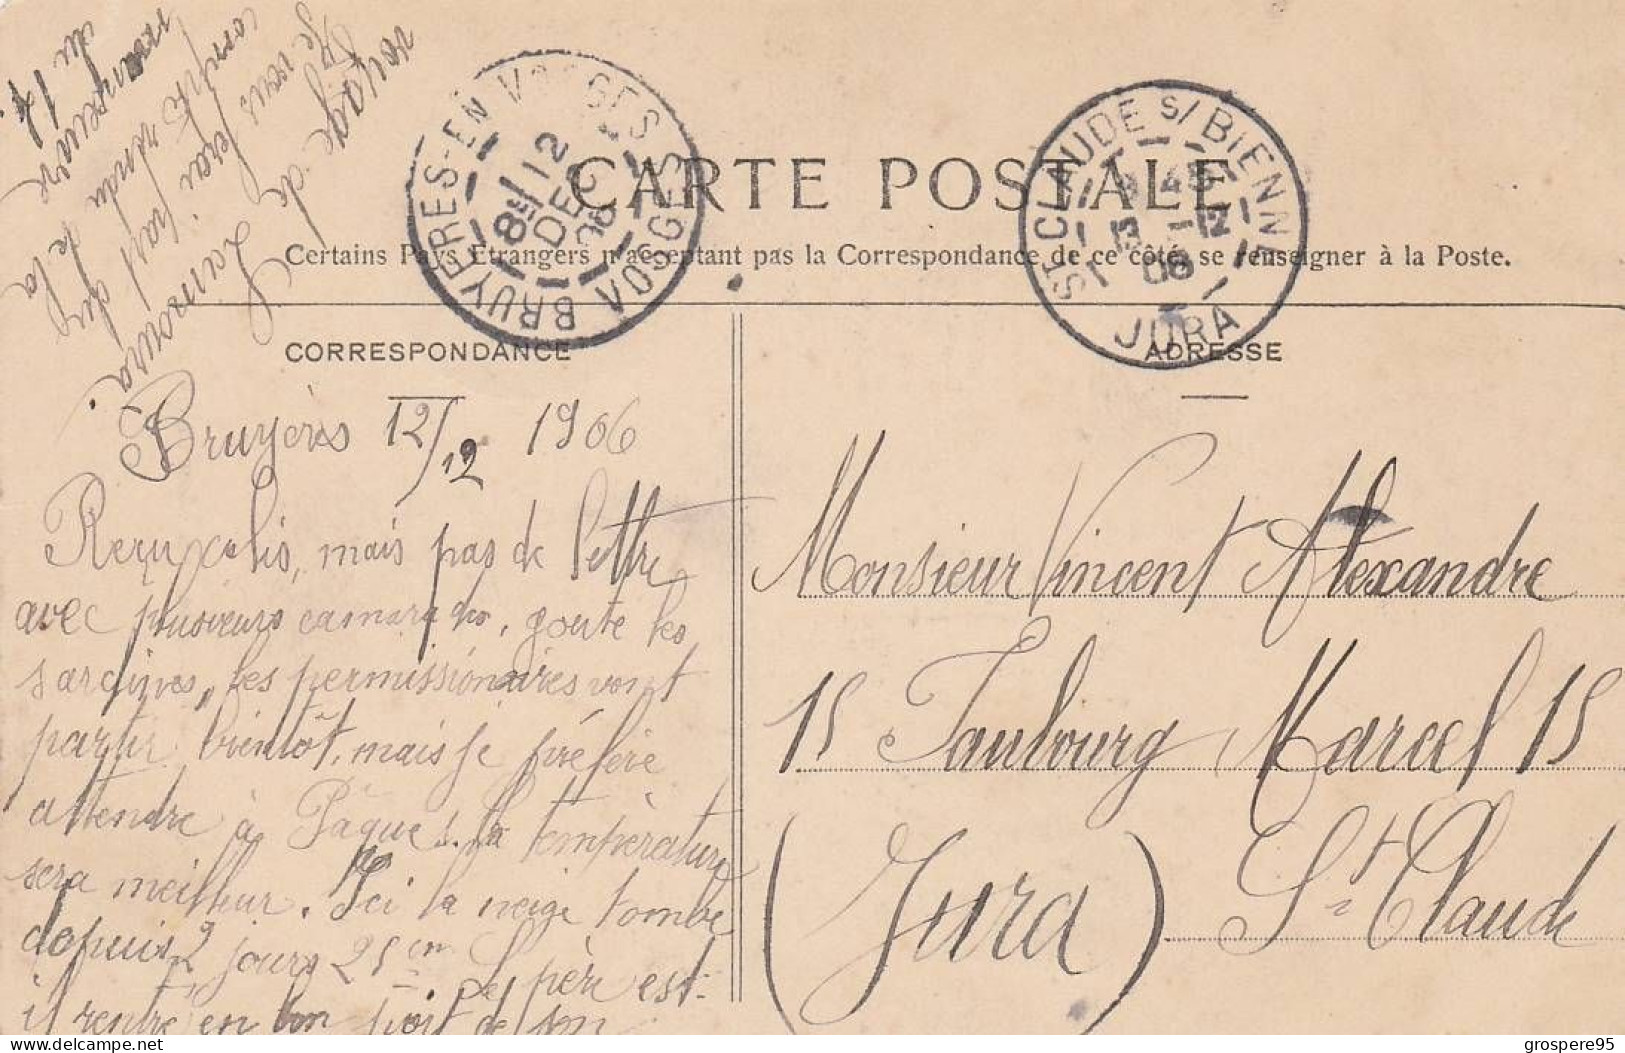 CARTE POSTALE
Certains Pays Etrangers n'acceptant pas la Correspondance de ce côté, se renseigner à la Poste.
BRUYERES-EN VOSGES
8E 12
DEC
06
VOSGES
ST CLAUDE S/ BIENNE
13 12
06
JURA
CORRESPONDANCE
Bruyères 12/12 1906
Reçu colis, mais pas de lettre
avec plusieurs camarades, goute les
sardines, les permissionnaires vont
partir bientôt, mais je préfère
attendre à Pâques. la tempèrature
sera meilleur. Ici la neige tombe
depuis 2 jours 25 cm Le père est-
il rentré en bon port de son
voyage de Lamoura.
Je vous ferai part du
compte rendu de la
manoeuvre
du 14.
ADRESSE
Monsieur Vincent Alexandre
15 Faubourg Marcel 15
St Claude
(Jura)
delcampe.net
grospere95